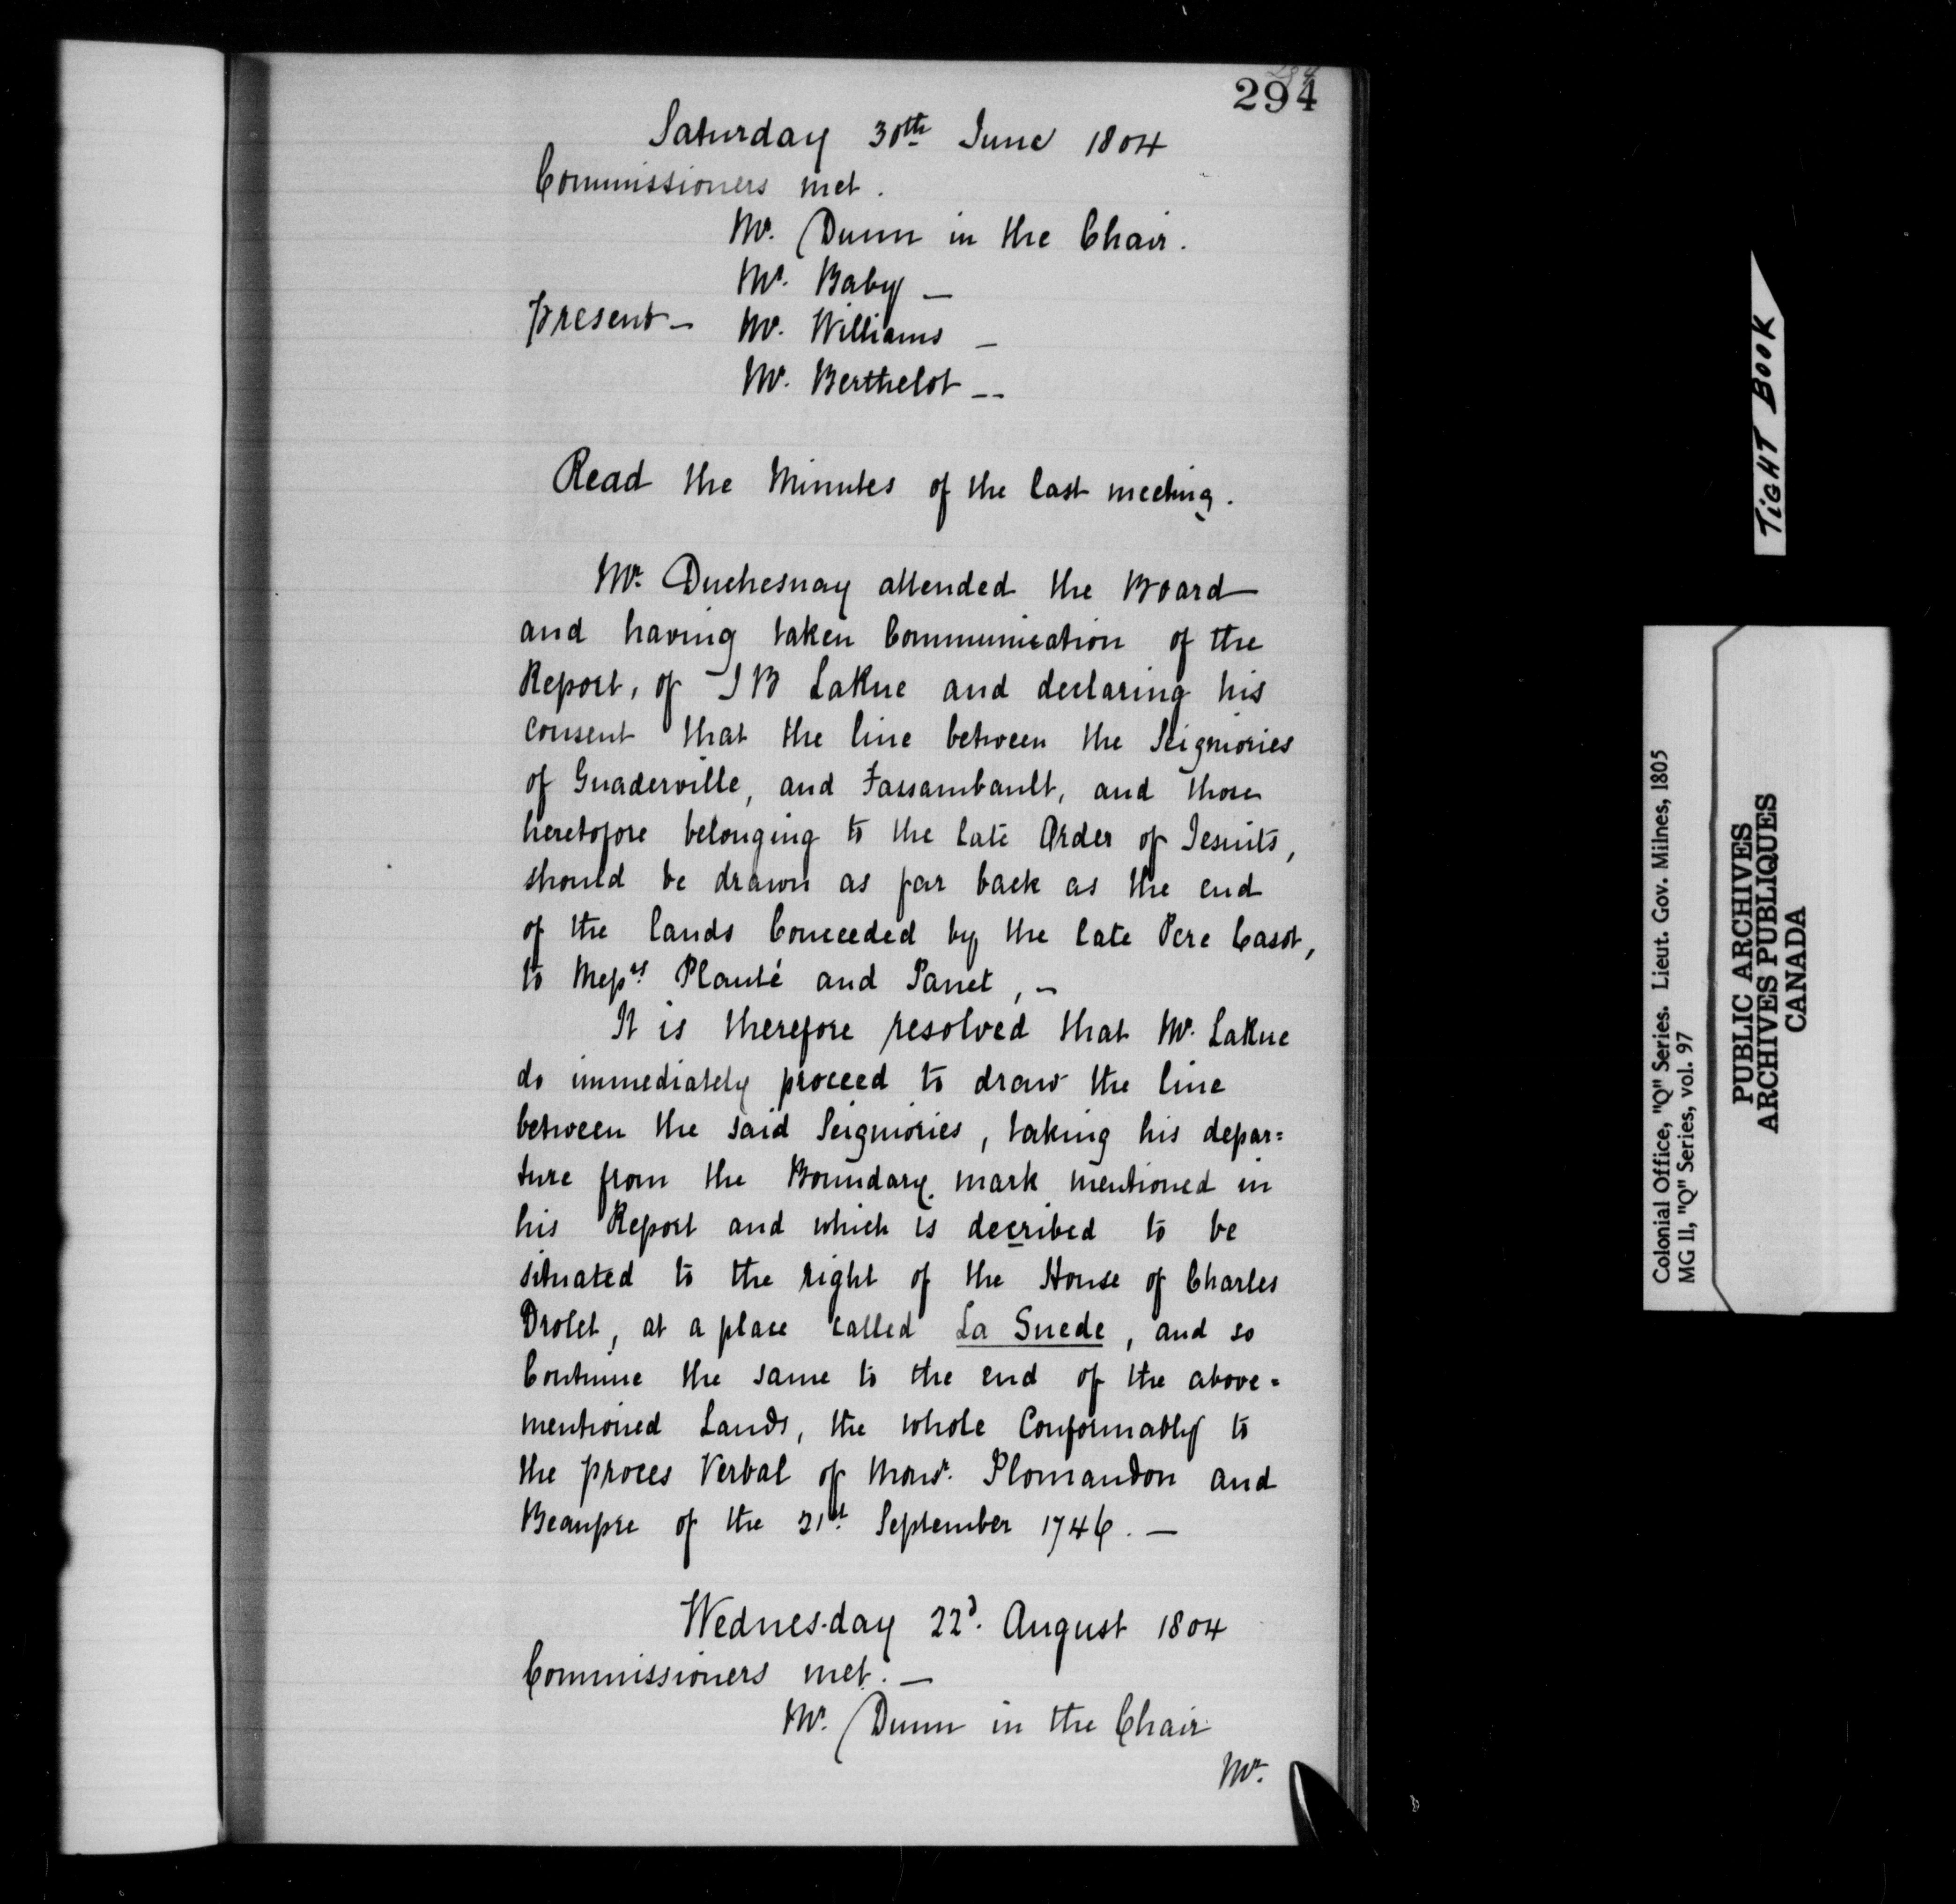 294
Saturday 30th June 1804
Commissioners met.
Mr. Dunn in the Chair.
Mr. Baby —
present — Mr. Williams —
Mr. Berthelot --
Read the Minutes of the last meeting.
Mr. Duchesnay attended the Board
and having taken Communication of the
Report, of J B LaRue and declaring his
consent that the line between the Seigniories
of Guaderville, and Fassambault, and those
heretofore belonging to the late Order of Jesuits,
should be drawn as far back as the end
of the lands Conceeded by the late Pere Casot,
to Messrs Planté and Panet, —
It is therefore resolved that Mr. LaRue
do immediately proceed to draw the line
between the said Seigniories, taking his depar=
ture from the Boundary mark mentioned in
his Report and which is decribed to be
situated to the right of the House of Charles
Drolet, at a place called La Suede, and so
Continue the same to the end of the above=
mentioned Lands, the whole Conformably to
the proces Verbal of Monsr. Plomandon and
Beaupre of the 21st September 1746. —
Wednesday 22d. August 1804
Commissioners met. —
Mr. Dunn in the Chair
Mr.
TIGHT BOOK
Colonial Office, "Q" Series. Lieut. Gov. Milnes, 1805
MG 11, "Q" Series, vol. 97
PUBLIC ARCHIVES
ARCHIVES PUBLIQUES
CANADA